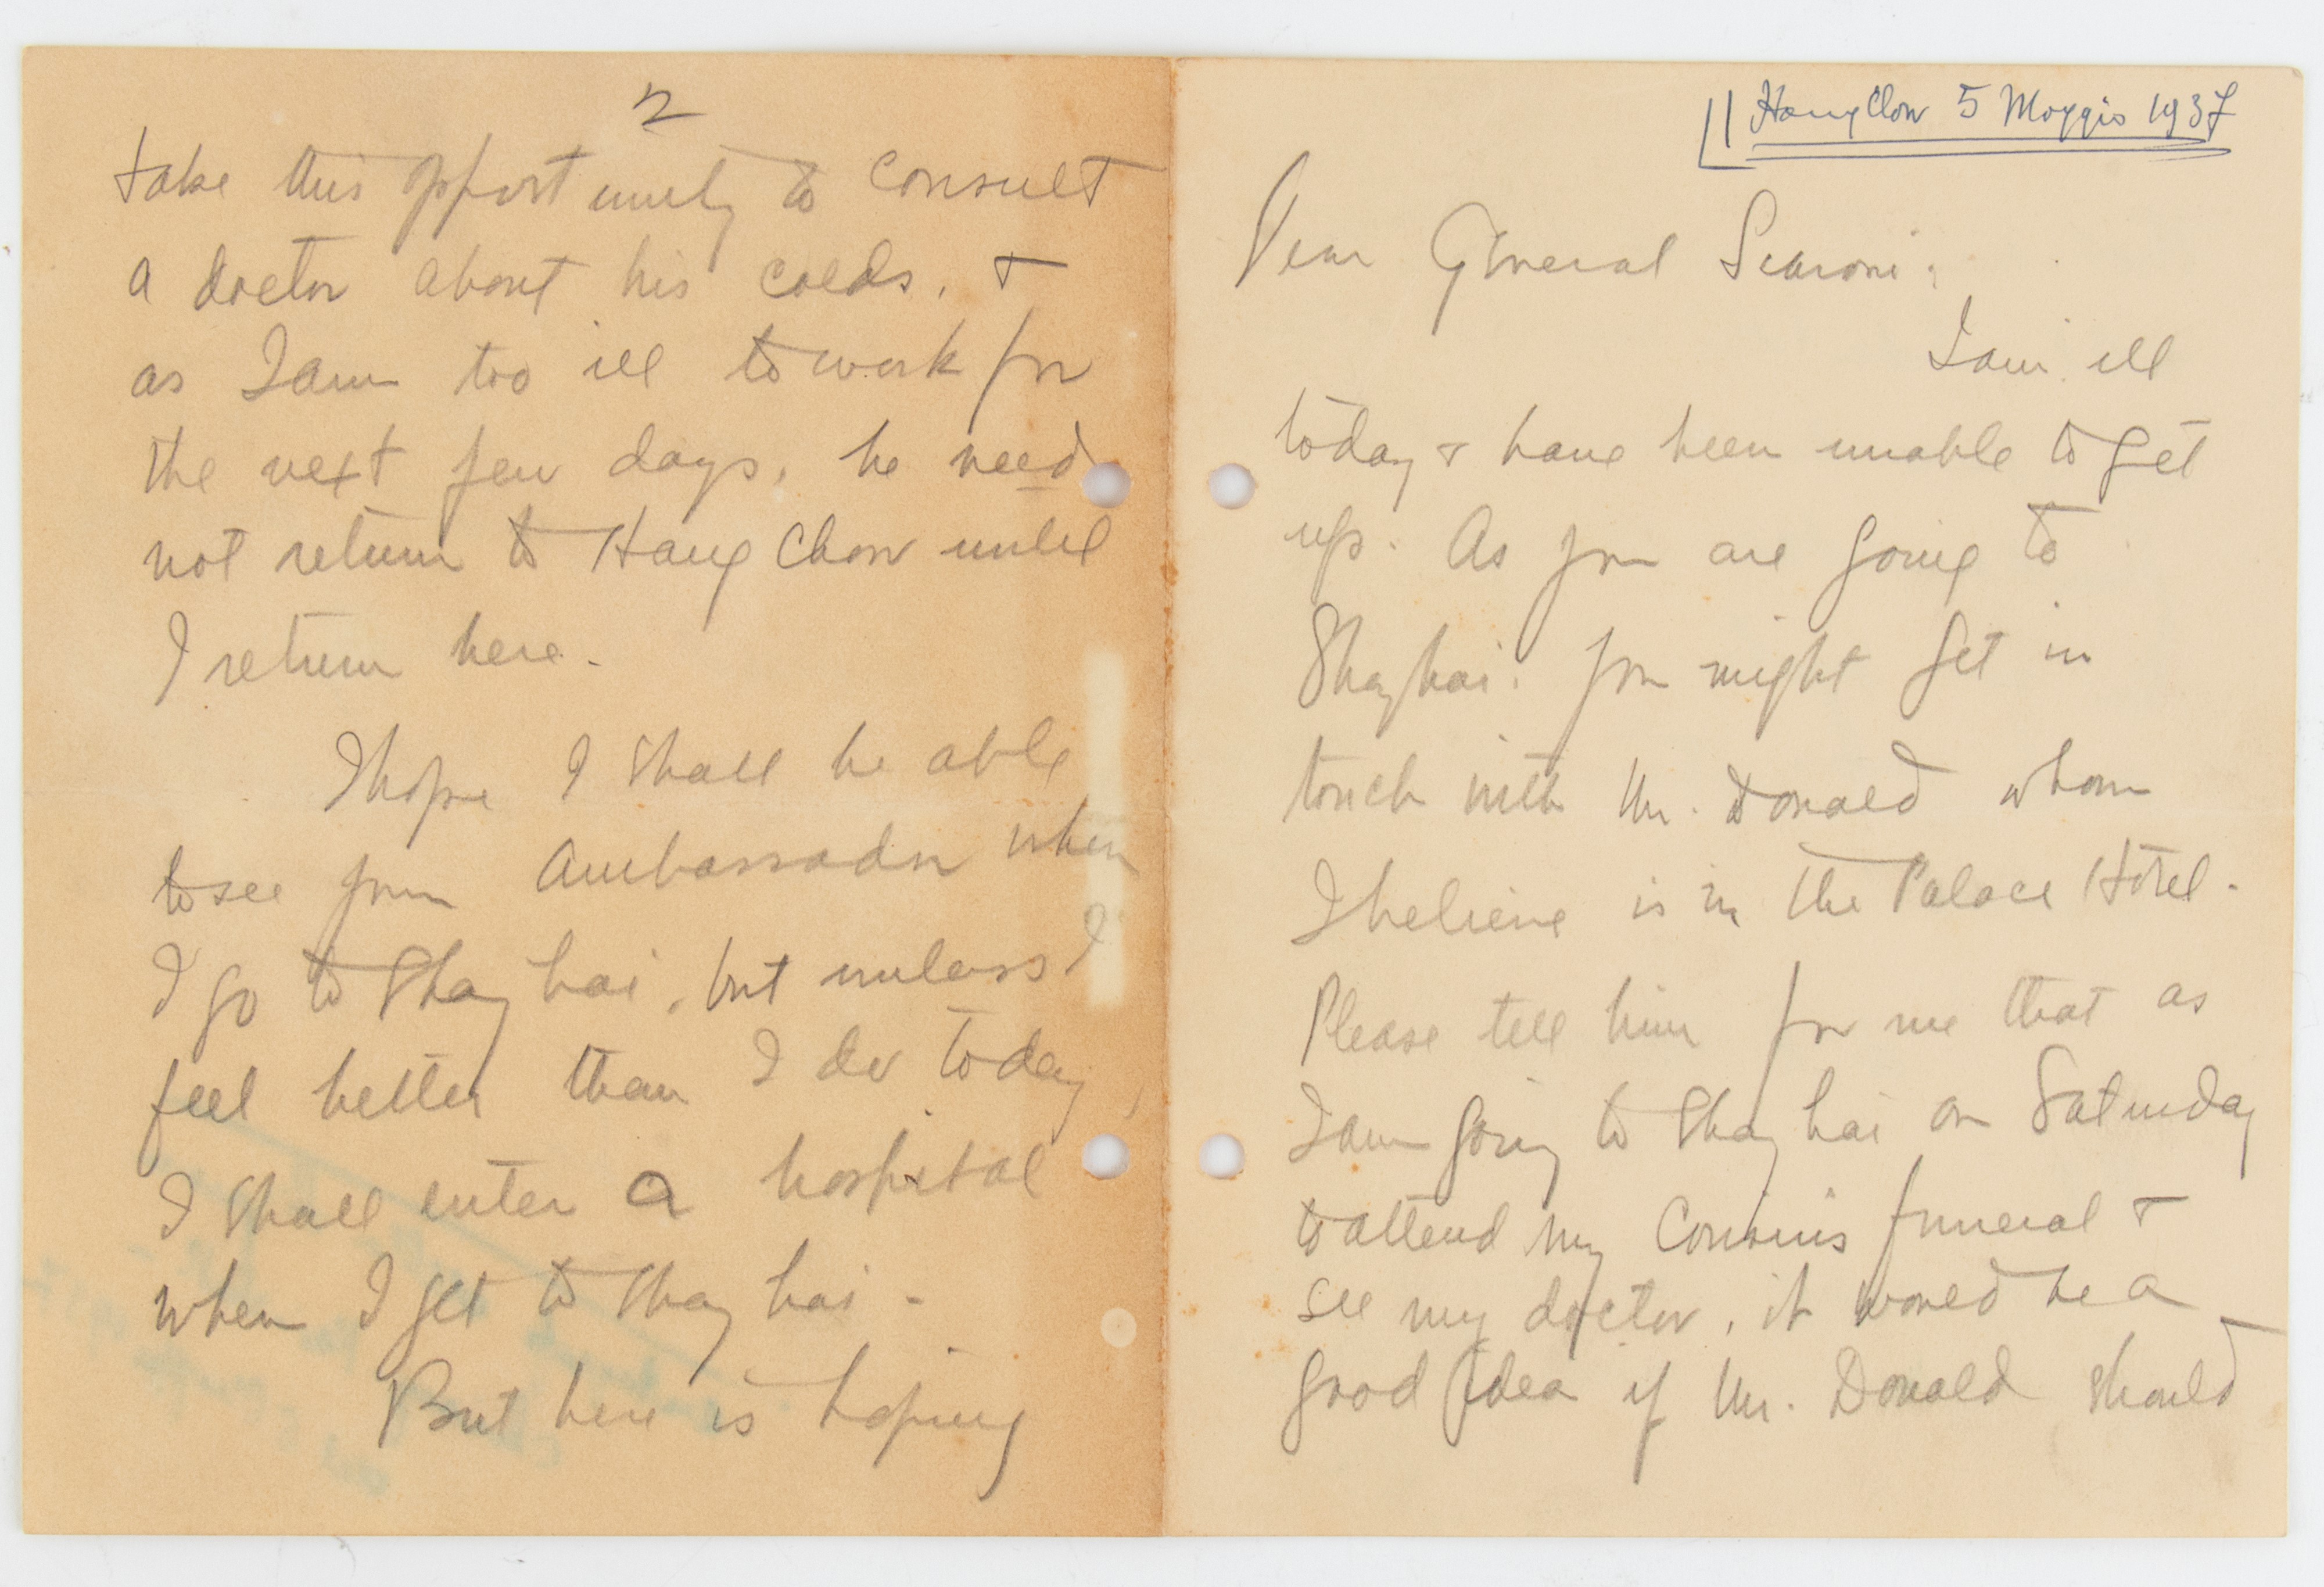 Hang Chow 5 Maggio 1937
Dear General Scaroni:
I am ill
today & have been unable to get
up. As you are going to
Shanghai. you might get in
touch with Mr. Donald whom
I believe is in the Palace Hotel.
Please tell him for me that as
I am going to Shanghai on Saturday
to attend my Cousin's funeral &
see my doctor, it would be a
good idea if Mr. Donald should
2
take this opportunity to consult
a doctor about his colds, &
as I am too ill to work for
the next few days, he need
not return to Hang Chow until
I return here.
I hope I shall be able
to see your Ambassador when
I go to Shanghai, but unless I
feel better than I do today,
I shall enter a hospital
when I get to Shanghai.
But here is hoping